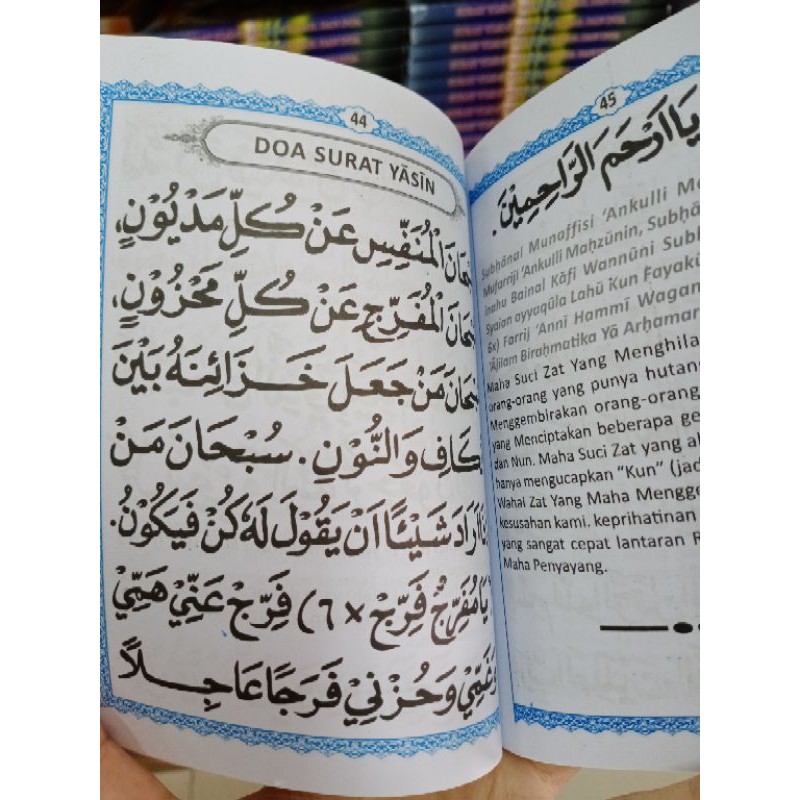 44
DOA SURAT YĀSĪN
سُبْحَانَ الْمُنَفِّسِ عَنْ كُلِّ مَدْيُوْنٍ،
سُبْحَانَ الْمُفَرِّجِ عَنْ كُلِّ مَحْزُوْنٍ،
سُبْحَانَ مَنْ جَعَلَ خَزَائِنَهُ بَيْنَ
الْكَافِ وَالنُّوْنِ. سُبْحَانَ مَنْ
اِذَا اَرَادَ شَيْئًا اَنْ يَقُوْلَ لَهُ كُنْ فَيَكُوْنُ.
(يَا مُفَرِّجُ فَرِّجْ ×٦) فَرِّجْ عَنِّيْ هَمِّيْ
وَغَمِّيْ وَحُزْنِيْ فَرَجًا عَاجِلاً
45
يَا اَرْحَمَ الرَّاحِمِيْنَ.
Subḥānal Munaffisi 'Ankulli
Mufarriji 'Ankulli Maḥzūnin, Subḥā
inahu Bainal Kāfi Wannūni Subḥ
Syaian ayyaqūla Lahū Kun Fayakū
6x) Farrij 'Annī Hammī Wagam
'Ājilam Biraḥmatika Yā Arḥamar
Maha Suci Zat Yang Menghila
orang-orang yang punya hutang
Menggembirakan orang-orang
yang Menciptakan beberapa ge
dan Nun. Maha Suci Zat yang
hanya mengucapkan "Kun" (jad
Wahai Zat Yang Maha Mengge
kesusahan kami, keprihatinan
yang sangat cepat lantaran R
Maha Penyayang.